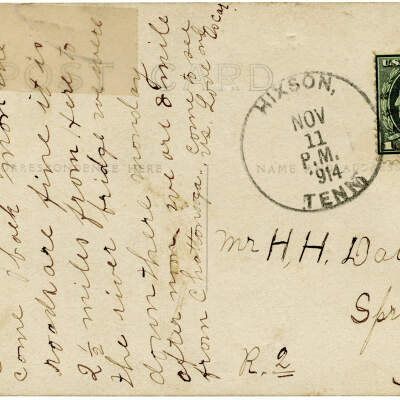 POST CARD
CORRESPONDENCE HERE
NAME AND ADDRESS
HIXSON,
NOV
11
P.M.
1914
TENN.
U.S.
1
Mr H, H, Da
Spr
R. 2
come back mon
roads are fine it is
2½ miles from here to
the river bridge we were
down there monday
after noon we are 8 mile
from Chattanooga come to see
us. Love